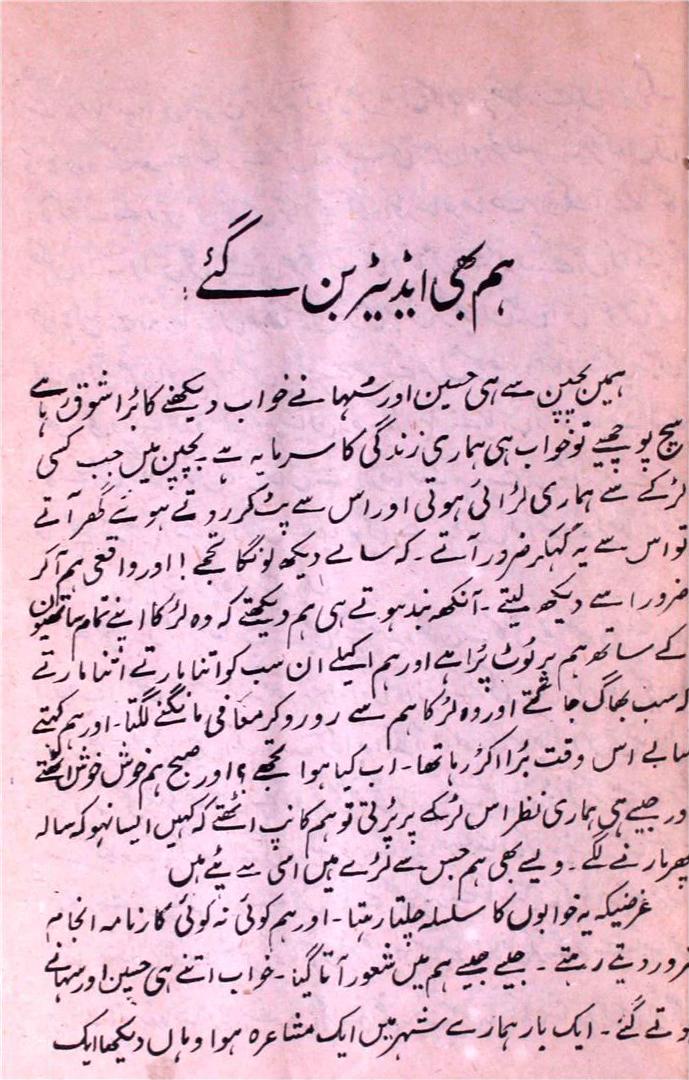 ہم بھی ایڈیٹر بن گئے!
ہمیں بچپن سے ہی حسین اور سُہانے خواب دیکھنے کا بڑا شوق رہا ہے
سچ پوچھیے تو خواب ہی ہماری زندگی کا سرمایہ ہے۔ بچپن میں جب کسی
لڑکے سے ہماری لڑائی ہوتی اور اس سے پٹ کر روتے ہوئے گھر آتے
تو اس سے یہ کہکر ضرور آتے۔ کہ سالے دیکھ لونگا تجھے! اور واقعی ہم آکر
ضرور اسے دیکھ لیتے۔ آنکھ بند ہوتے ہی ہم دیکھتے کہ وہ لڑکا اپنے تمام ساتھیوں
کے ساتھ ہم پر ٹوٹ پڑا ہے اور ہم اکیلے ان سب کو اتنا مارتے اتنا مارتے
کہ سب بھاگ جاتے اور وہ لڑکا ہم سے رو رو کر معافی مانگنے لگتا۔ اور ہم کہتے
سالے اس وقت بڑا اکڑ رہا تھا۔ اب کیا ہوا تجھے؟ اور صبح ہم خوش خوش اٹھتے
اور جیسے ہی ہماری نظر اس لڑکے پر پڑتی تو ہم کانپ اٹھتے کہ کہیں ایسا نہو کہ سالہ
پھر مارنے لگے۔ ویسے بھی ہم جس سے لڑے ہیں اسی سے پٹے ہیں
غرضیکہ یہ خوابوں کا سلسلہ چلتا رہتا۔ اور ہم کوئی نہ کوئی کارنامہ انجام
ضرور دیتے رہتے۔ جیسے جیسے ہم میں شعور آتا گیا۔ خواب اتنے ہی حسین اور سہانے
ہوتے گئے۔ ایک بار ہمارے شہر میں ایک مشاعرہ ہوا وہاں دیکھا ایک